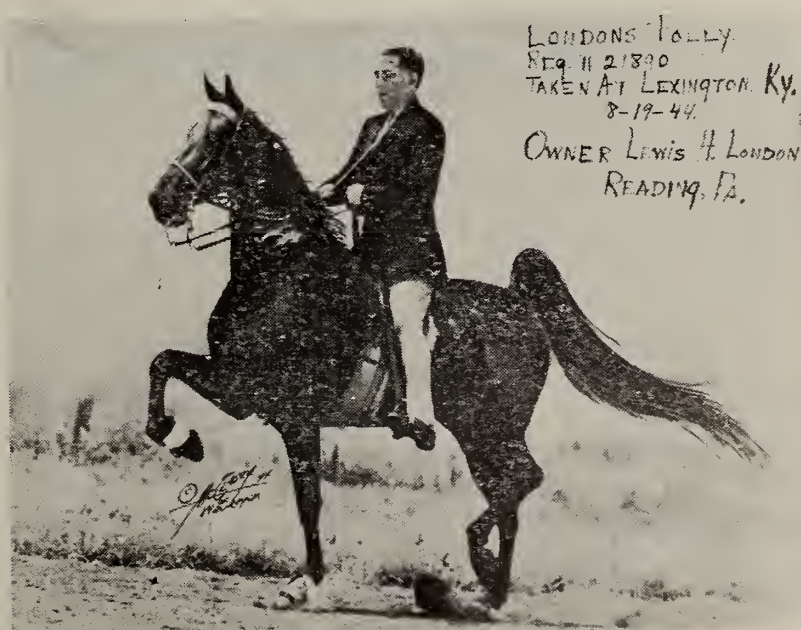 LONDONS FOLLY
REQ. # 21890
TAKEN AT LEXINGTON KY.
8-19-44.
OWNER LEWIS H. LONDON
READING, PA.